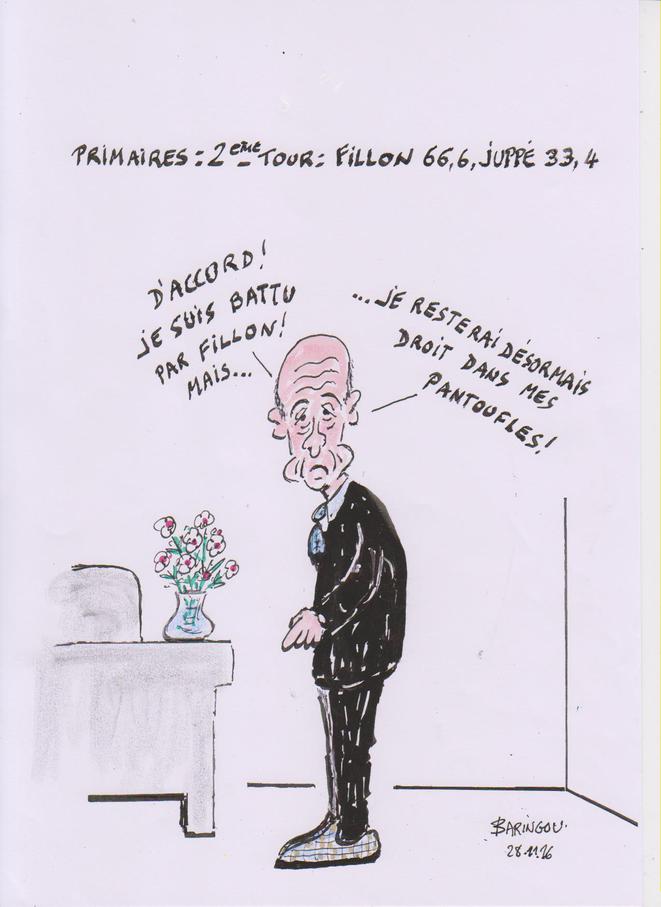 PRIMAIRES : 2ème TOUR : FILLON 66,6, JUPPÉ 33,4
D'ACCORD !
JE SUIS BATTU
PAR FILLON !
MAIS...
...JE RESTERAI DÉSORMAIS
DROIT DANS MES
PANTOUFLES !
BARINGOU.
28.11.16